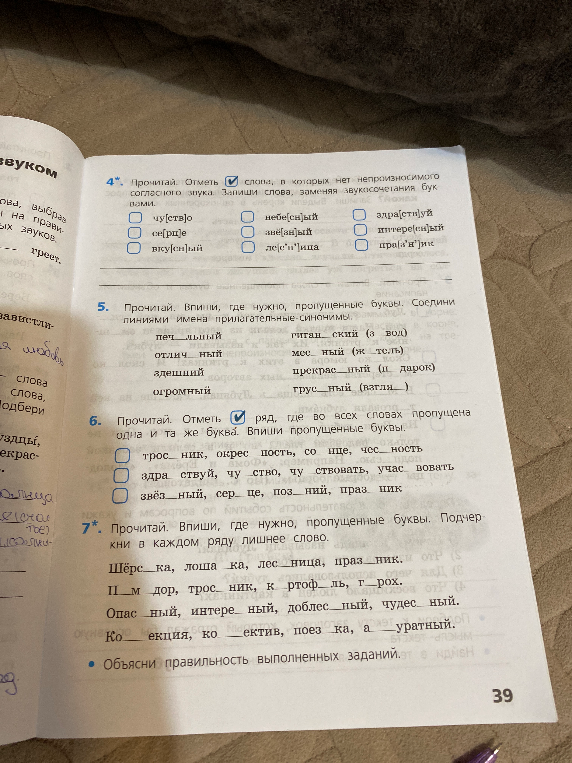 звуком
ова, выбрав
реет.
завистли-
слова
слова,
Подбери
4*. Прочитай. Отметь слова, в которых нет непроизносимого
согласного звука. Запиши слова, заменяя звукосочетания бук
вами.
чу[ств]о небе[сн]ый здра[ств]уй
се[рц]е звё[зн]ый интере[сн]ый
вку[сн]ый ле[с'н']ица пра[з'н']ик
5. Прочитай. Впиши, где нужно, пропущенные буквы. Соедини
линиями имена прилагательные-синонимы.
печ__льный гиган__ский (з__вод)
отлич__ный мес__ный (ж__тель)
здешний прекрас__ный (п__дарок)
огромный грус__ный (взгля__)
6. Прочитай. Отметь ряд, где во всех словах пропущена
одна и та же буква. Впиши пропущенные буквы.
трос__ник, окрес__ность, со__нце, чес__ность
здра__ствуй, чу__ство, чу__ствовать, учас__вовать
звёз__ный, сер__це, поз__ний, праз__ник
7*. Прочитай. Впиши, где нужно, пропущенные буквы. Подчер-
кни в каждом ряду лишнее слово.
Шёрс__ка, лоша__ка, лес__ница, праз__ник.
П__м__дор, трос__ник, к__ртоф__ль, г__рох.
Опас__ный, интере__ный, доблес__ный, чудес__ный.
Ко__екция, ко__ектив, поез__ка, а__уратный.
• Объясни правильность выполненных заданий.
39